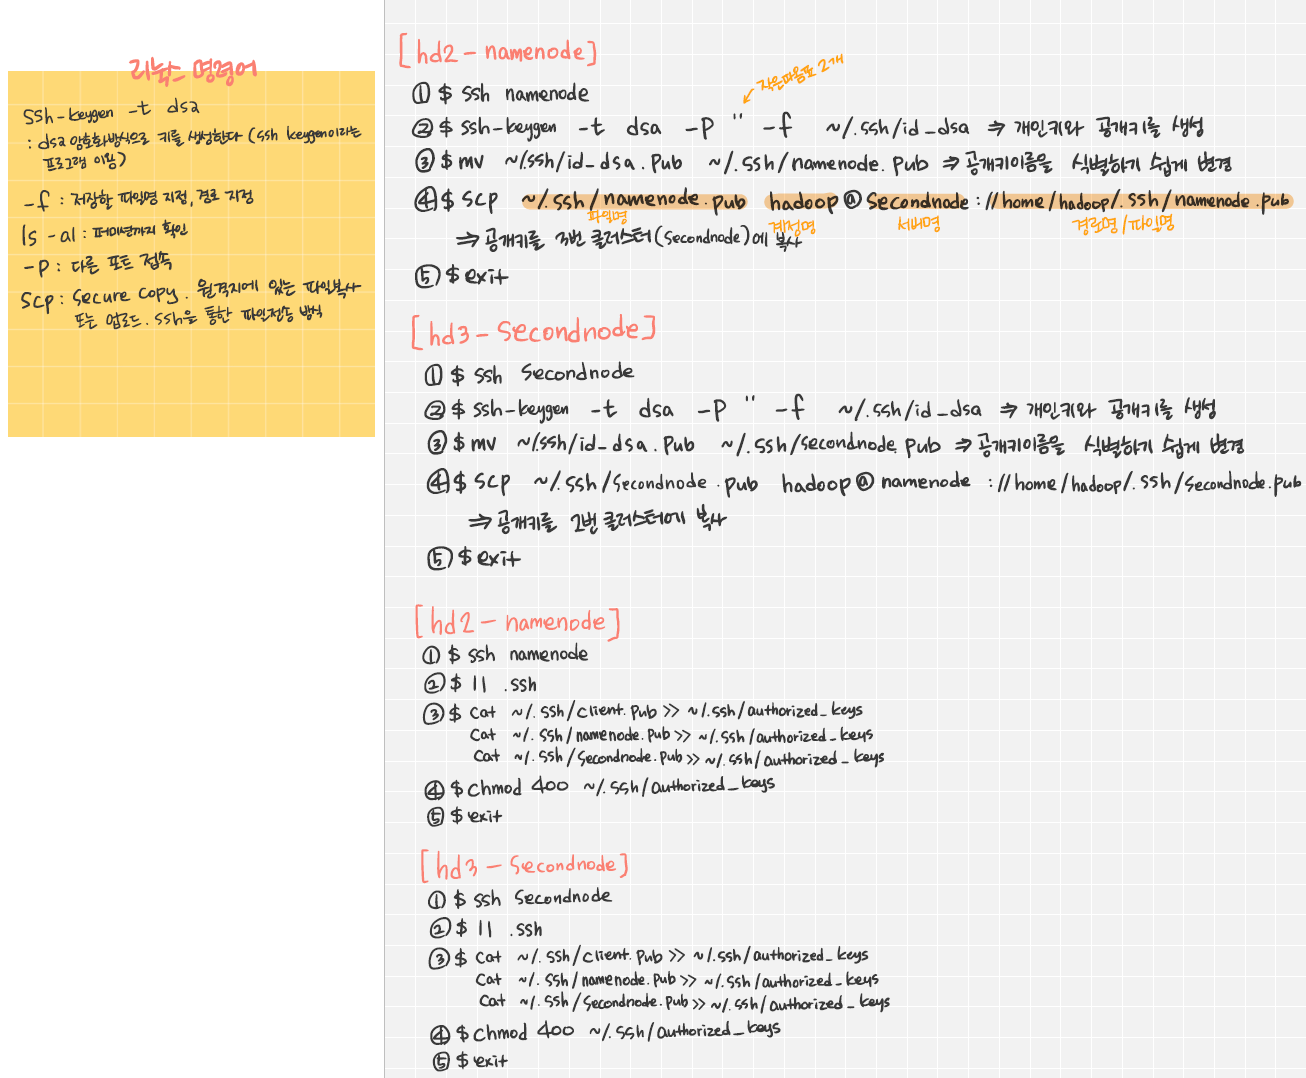 리눅스 명령어
ssh-keygen -t dsa
: dsa 암호화방식으로 키를 생성한다 (ssh keygen이라는
프로그램 이용)
-f : 저장할 파일명 지정, 경로 지정
ls -al : 퍼미션까지 확인
-P : 다른 포트 접속
scp : secure copy. 원격지에 있는 파일복사
또는 업로드. ssh을 통한 파일전송 방식
[hd2 - namenode]
① $ ssh namenode
작은따옴표 2개
② $ ssh-keygen -t dsa -P '' -f ~/.ssh/id_dsa ⇒ 개인키와 공개키를 생성
③ $ mv ~/ssh/id_dsa.pub ~/.ssh/namenode.pub ⇒ 공개키이름을 식별하기 쉽게 변경
④ $ scp ~/.ssh/namenode.pub hadoop@secondnode://home/hadoop/.ssh/namenode.pub
파일명 계정명 서버명 경로명/파일명
⇒ 공개키를 3번 클러스터(secondnode)에 복사
⑤ $ exit
[hd3 - secondnode]
① $ ssh secondnode
② $ ssh-keygen -t dsa -P '' -f ~/.ssh/id_dsa ⇒ 개인키와 공개키를 생성
③ $ mv ~/ssh/id_dsa.pub ~/.ssh/secondnode.pub ⇒ 공개키이름을 식별하기 쉽게 변경
④ $ scp ~/.ssh/secondnode.pub hadoop@namenode://home/hadoop/.ssh/secondnode.pub
⇒ 공개키를 2번 클러스터에 복사
⑤ $ exit
[hd2 - namenode]
① $ ssh namenode
② $ ll .ssh
③ $ cat ~/.ssh/client.pub >> ~/.ssh/authorized_keys
cat ~/.ssh/namenode.pub >> ~/.ssh/authorized_keys
cat ~/.ssh/secondnode.pub >> ~/.ssh/authorized_keys
④ $ chmod 400 ~/.ssh/authorized_keys
⑤ $ exit
[hd3 - secondnode]
① $ ssh secondnode
② $ ll .ssh
③ $ cat ~/.ssh/client.pub >> ~/.ssh/authorized_keys
cat ~/.ssh/namenode.pub >> ~/.ssh/authorized_keys
cat ~/.ssh/secondnode.pub >> ~/.ssh/authorized_keys
④ $ chmod 400 ~/.ssh/authorized_keys
⑤ $ exit